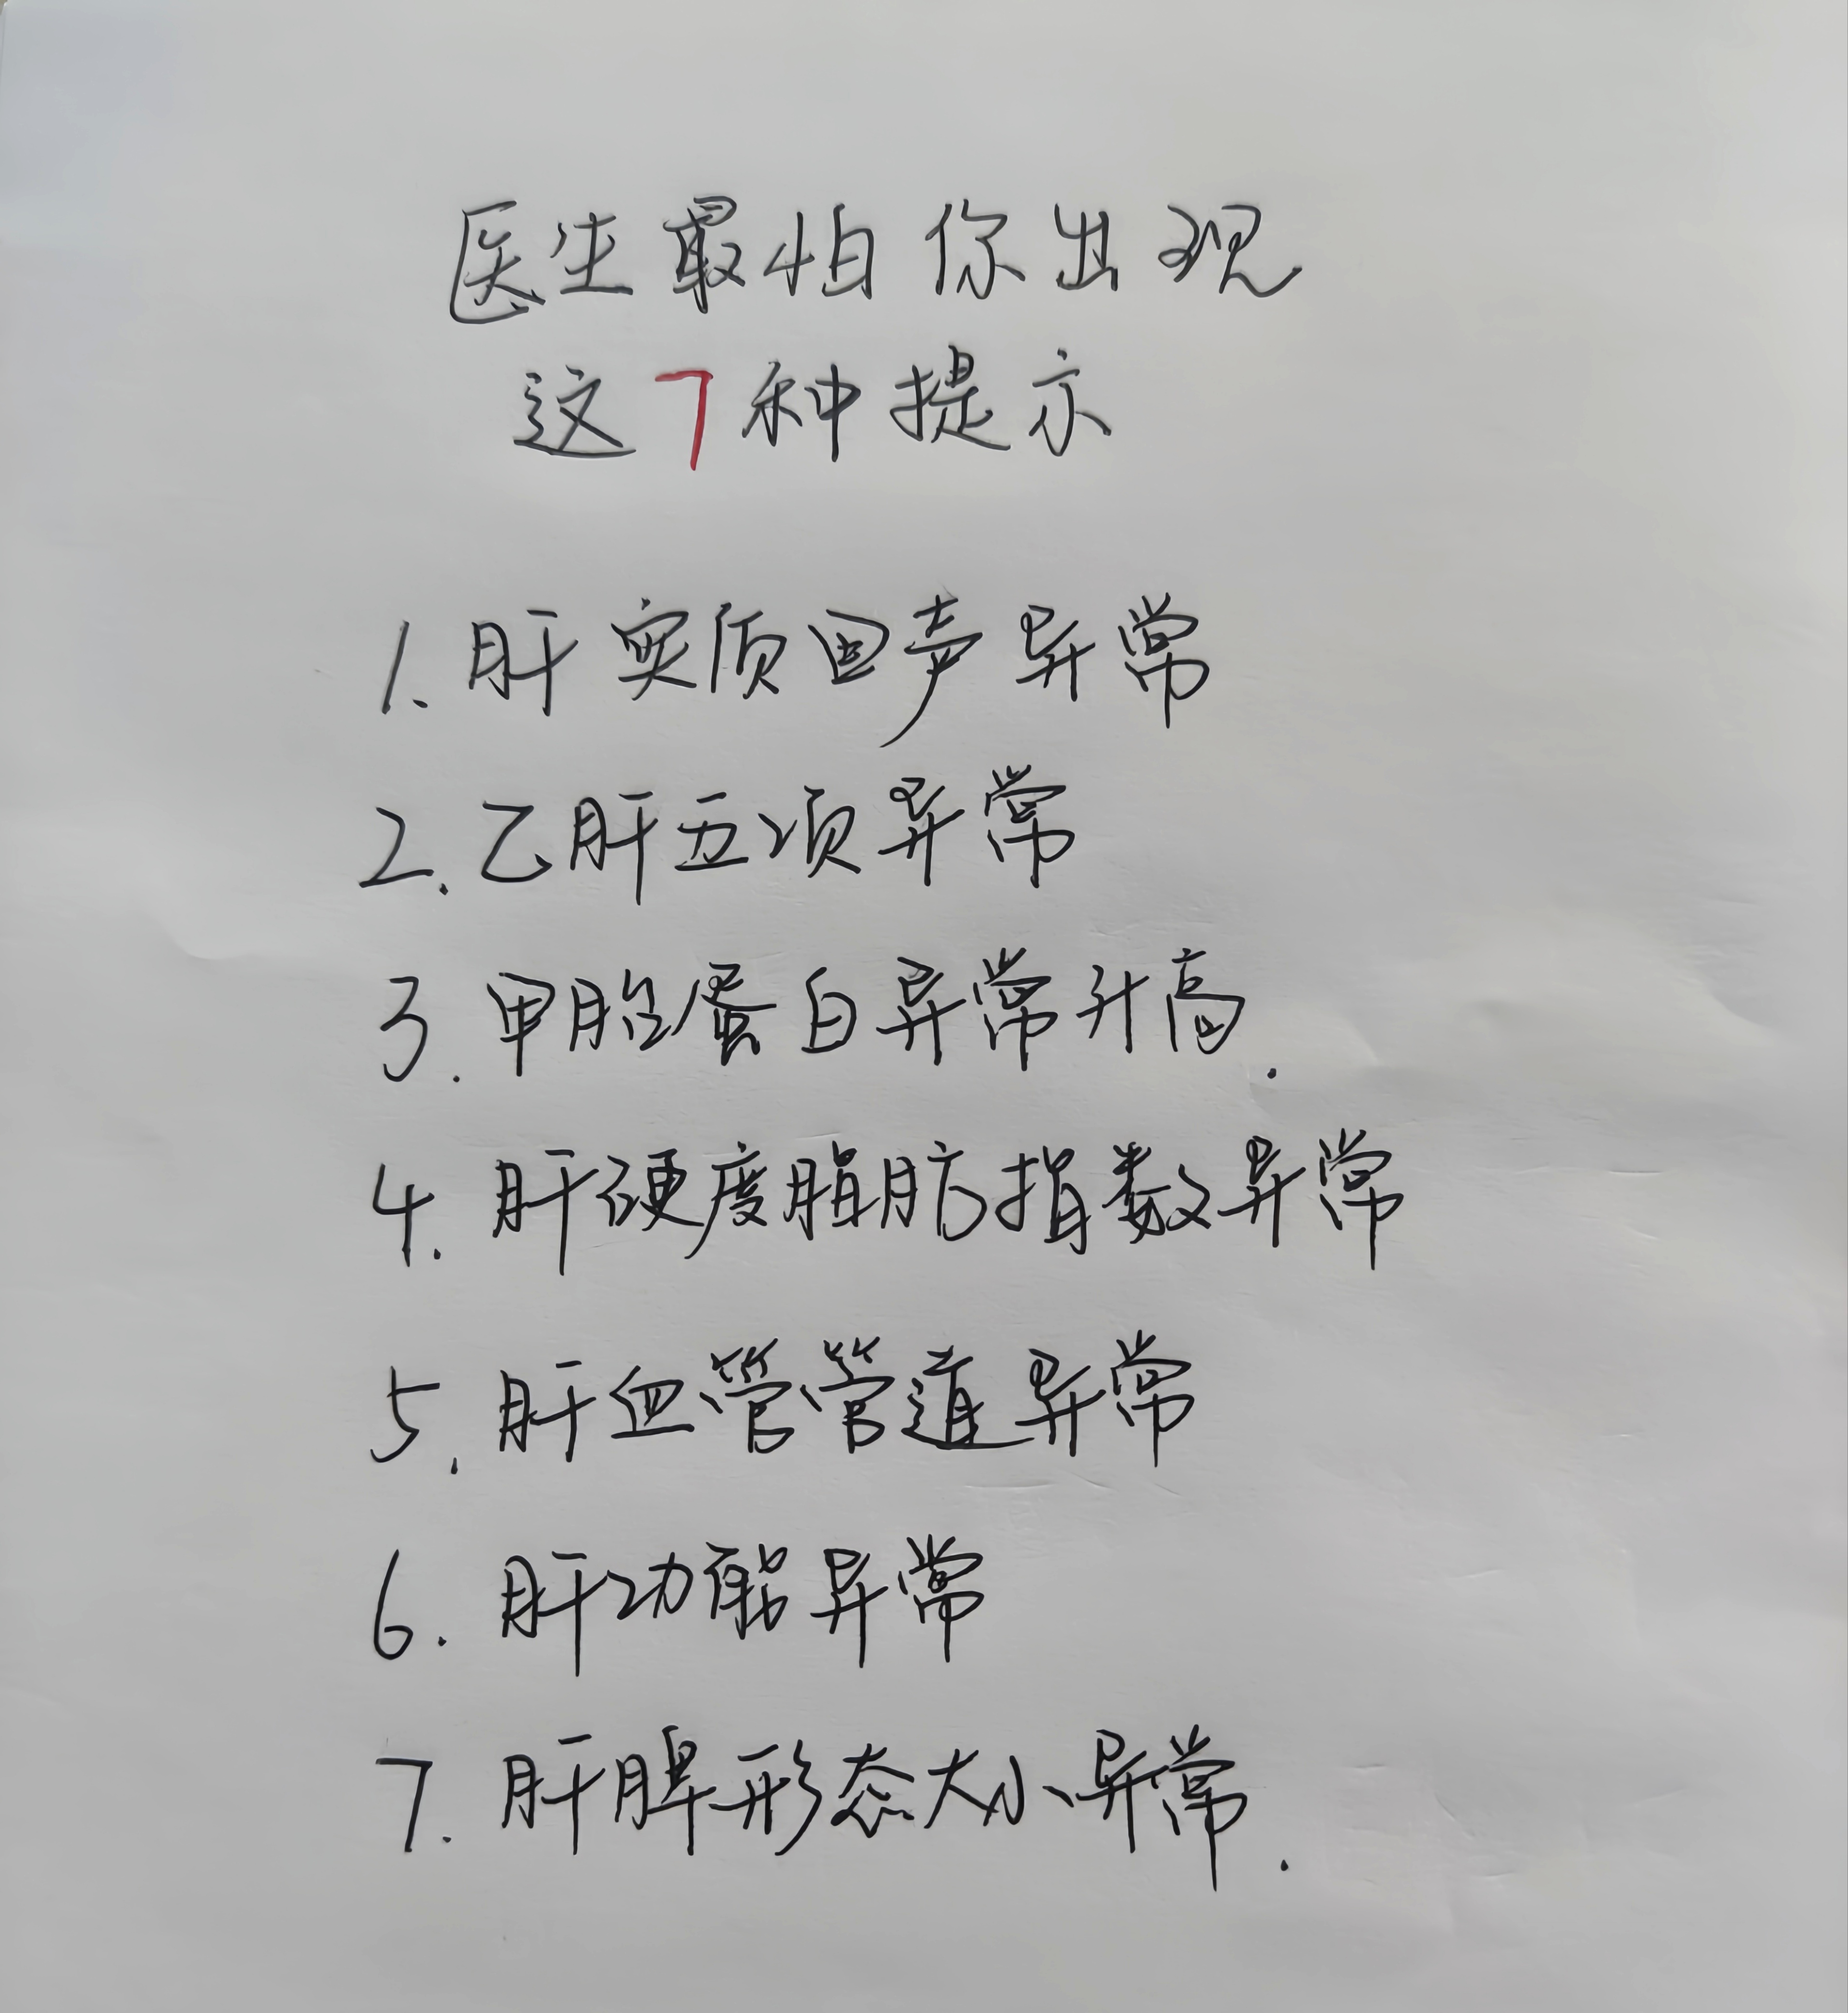 医生最怕你出现
这7种提示
1.肝实质回声异常
2.乙肝五项异常
3.甲胎蛋白异常升高.
4.肝硬度脂肪指数异常
5.肝血管管道异常
6.肝功能异常
7.肝脾形态大小异常.